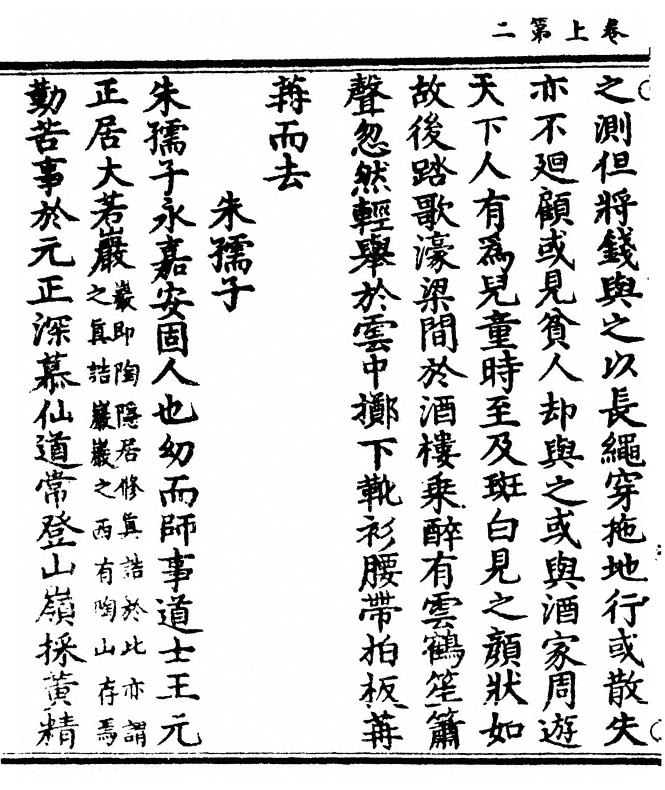 卷上第二
之測但將錢與之以長繩穿拖地行或散失
亦不廻顧或見貧人却與之或與酒家周遊
天下人有為兒童時至及斑白見之顏狀如
故後踏歌濠梁間於酒樓乘醉有雲鶴笙簫
聲忽然輕舉於雲中擲下靴衫腰帶拍板苒
苒而去
朱孺子
朱孺子永嘉安固人也幼而師事道士王元
正居大若巖
巖即陶隱居修真誥於此亦謂
之真誥巖巖之西有陶山存焉
勤苦事於元正深慕仙道常登山嶺採黃精